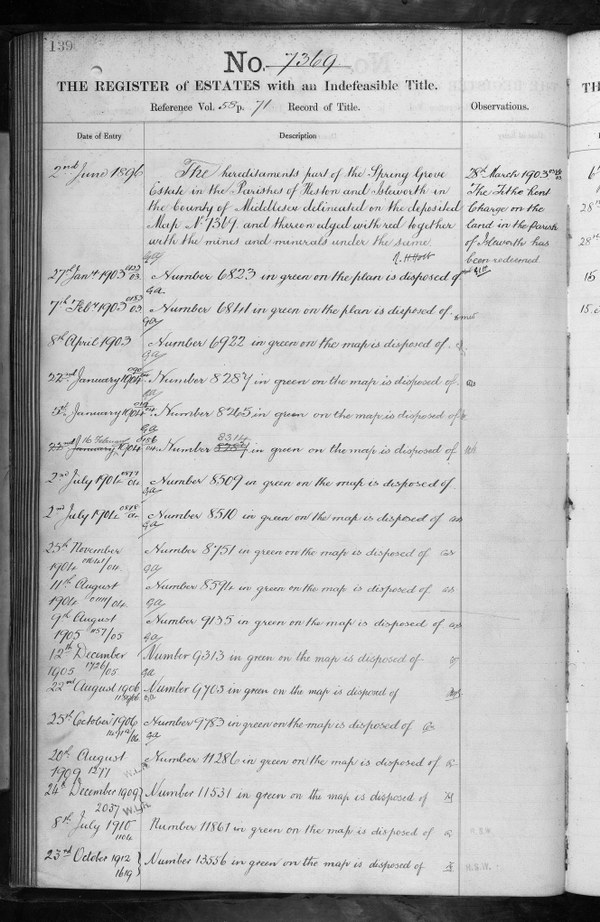 139
No. 7369
THE REGISTER of ESTATES with an Indefeasible Title.
Reference Vol. 58 p. 71 Record of Title.
Observations.
Date of Entry
Description
2nd June 1896
The hereditaments part of the Spring Grove
Estate in the Parishes of Heston and Isleworth in
the County of Middlesex delineated on the deposited
Map No 7369 and thereon edged with red together
with the mines and minerals under the same
28th March 1903
The Tithe Rent
Charge on the
land in the Parish
of Isleworth has
been redeemed
27th Jany 1903 Number 6823 in green on the plan is disposed of
7th Feby 1903 Number 6841 in green on the plan is disposed of
8th April 1903 Number 6922 in green on the map is disposed of
22nd January 1904 Number 8287 in green on the map is disposed of
5th January 1904 Number 8245 in green on the map is disposed of
16 February
22nd January 1904 Number 8314 in green on the map is disposed of
2nd July 1904 Number 8509 in green on the map is disposed of
2nd July 1904 Number 8510 in green on the map is disposed of
25th November
1904 Number 8751 in green on the map is disposed of
11th August
1904 Number 8594 in green on the map is disposed of
9th August
1905 Number 9135 in green on the map is disposed of
12th December
1905 1726/05 Number 9313 in green on the map is disposed of
22nd August 1906 Number 9703 in green on the map is disposed of
25th October 1906 Number 9783 in green on the map is disposed of
20th August
1909 1277 Number 11286 in green on the map is disposed of
24th December 1909 Number 11531 in green on the map is disposed of
2037 W.L.R.
8th July 1910 Number 11861 in green on the map is disposed of
1104
23rd October 1912 Number 13556 in green on the map is disposed of
1619